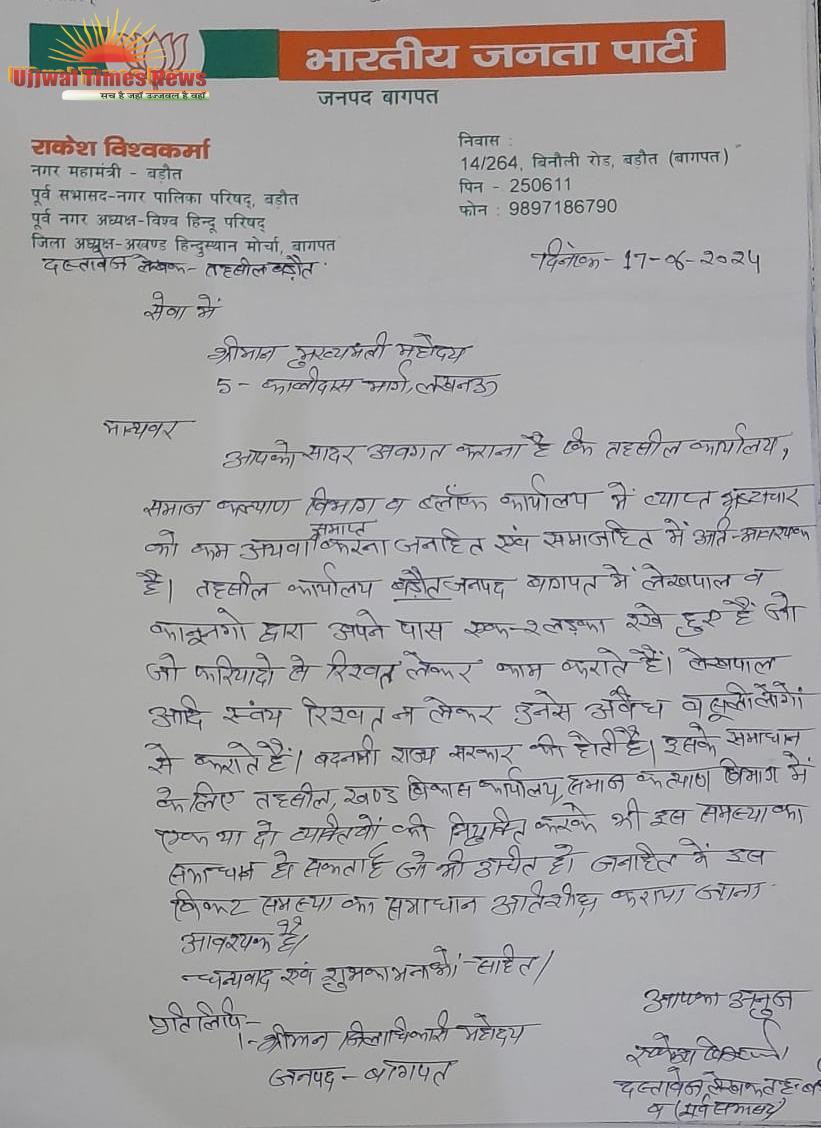 Ujjwal Times News
सच है जहाँ उज्जवल है वहाँ
भारतीय जनता पार्टी
जनपद बागपत
राकेश विश्वकर्मा
नगर महामंत्री - बड़ौत
पूर्व सभासद-नगर पालिका परिषद्, बड़ौत
पूर्व नगर अध्यक्ष-विश्व हिन्दू परिषद्
जिला अध्यक्ष-अखण्ड हिन्दुस्थान मोर्चा, बागपत
दस्तावेज लेखक- तहसील बड़ौत
निवास :
14/264, बिनौली रोड, बड़ौत (बागपत)
पिन - 250611
फोन : 9897186790
दिनांक- 17-06-2024
सेवा में
श्रीमान मुख्यमंत्री महोदय
5- कालीदास मार्ग, लखनऊ
मान्यवर
आपको सादर अवगत कराना है कि तहसील कार्यालय,
समाज कल्याण विभाग व ब्लॉक कार्यालय में व्याप्त भ्रष्टाचार
को कम अथवा समाप्त करना जनहित एवं समाजहित में अति-आवश्यक
है। तहसील कार्यालय बड़ौत जनपद बागपत में लेखपाल व
कानूनगो द्वारा अपने पास एक-२ लड़का रखे हुए हैं जो
जो फरियादी से रिश्वत लेकर काम कराते हैं। लेखपाल
आदि स्वंय रिश्वत न लेकर उनसे अवैध वसूली लोगों
से कराते हैं। बदनामी राज्य सरकार की होती है। इसके समाधान
के लिए तहसील, खण्ड विकास कार्यालय, समाज कल्याण विभाग में
एक या दो व्यक्तियों की नियुक्ति करके भी इस समस्या का
समाधान हो सकता है जो भी उचित हो। जनहित में इस
विकट समस्या का समाधान अतिशीघ्र कराया जाना
आवश्यक है।
धन्यवाद एवं शुभकामनाओं सहित।
आपका अनुज
प्रतिलिपि-
1- श्रीमान जिलाधिकारी महोदय
जनपद - बागपत
दस्तावेज लेखक तह-
व (पूर्व सभासद)